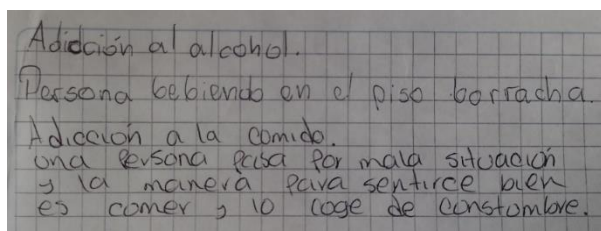 Adicción al alcohol.
Persona bebiendo en el piso borracha.
Adicción a la comida.
una persona pasa por mala situación
y la manera para sentirce bien
es comer y lo coge de constombre.